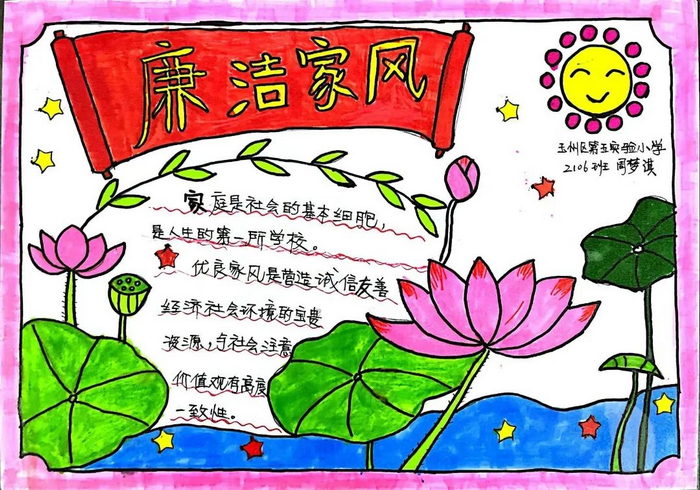 廉洁家风
玉州区第五实验小学
2106班 周梦淇
家庭是社会的基本细胞,
是人生的第一所学校。
优良家风是营造诚信友善
经济社会环境的宝贵
资源,与社会主意
价值观有高度
一致性。